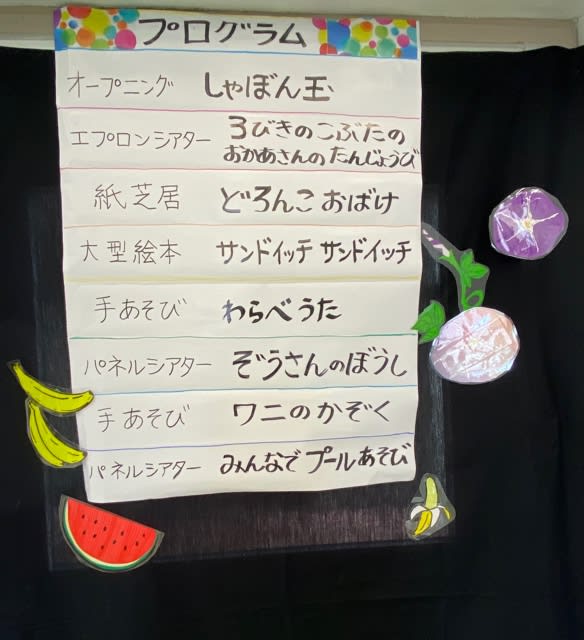 プログラム
オープニング しゃぼん玉
エプロンシアター 3びきのこぶたの
おかあさんの たんじょうび
紙芝居 どろんこ おばけ
大型絵本 サンドイッチ サンドイッチ
手あそび わらべうた
パネルシアター ぞうさんのぼうし
手あそび ワニのかぞく
パネルシアター みんなで プールあそび